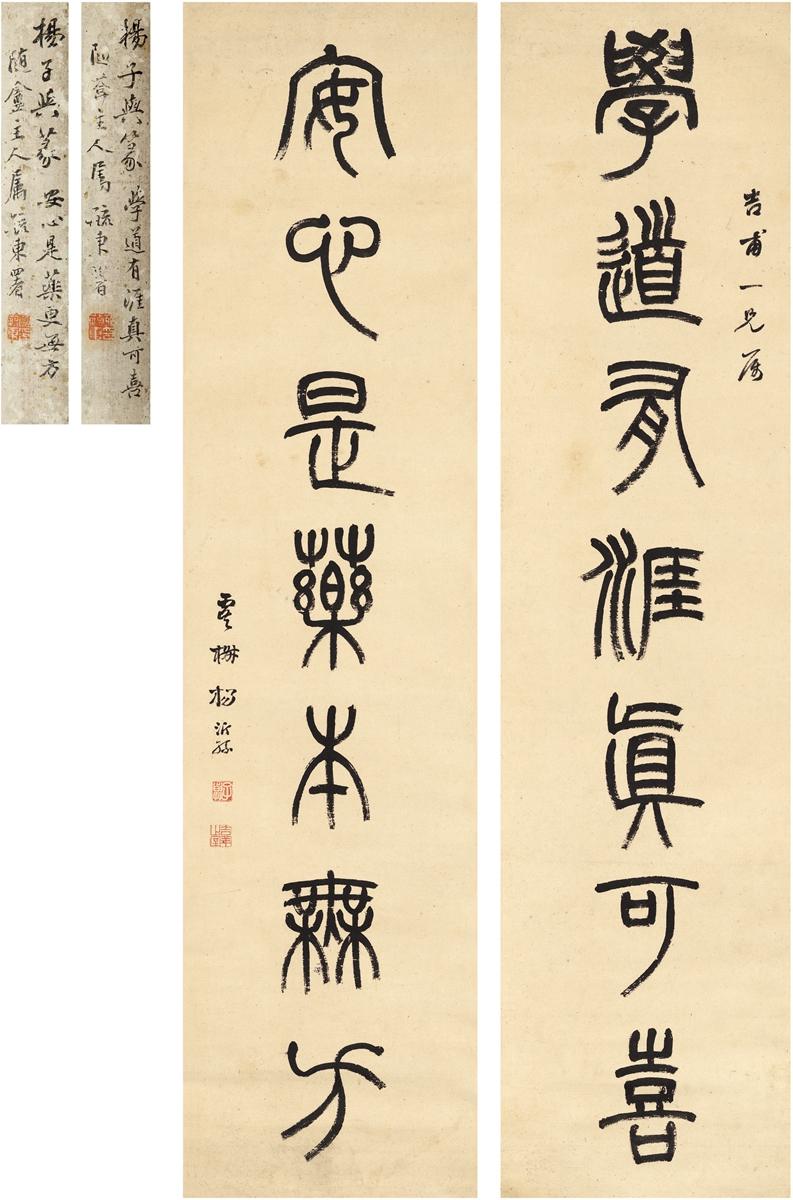 學道有涯真可喜
吉甫一兄屬
安心是藥本無方
虞楙楊沂孫
楊子與篆 學道有涯真可喜
隨盦主人屬 疏東署
楊子與篆 安心是藥更無方
隨盦主人屬 疏東署